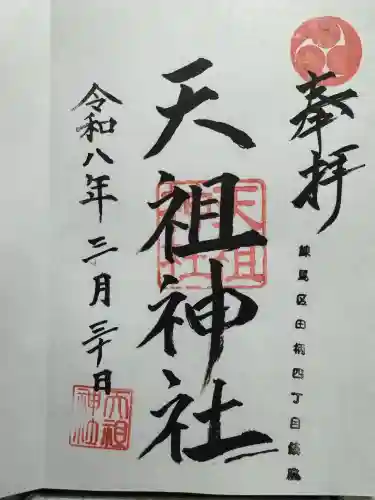 奉拝
練馬区田柄四丁目鎮座
天祖神社
天祖神社
令和八年三月三十日
天祖神社